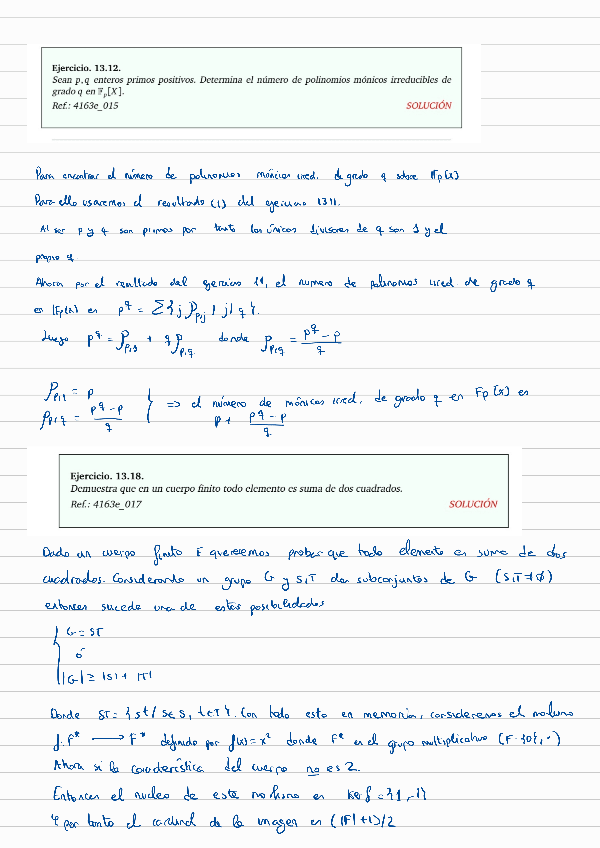 Ejercicio. 13.12.
Sean p, q enteros primos positivos. Determina el número de polinomios mónicos irreducibles de
grado q en 𝔽ₚ[X].
Ref.: 4163e_015 SOLUCIÓN
Para encontrar el número de polinomios mónicos irred. de grado q sobre Fp[x]
Para ello usaremos el resultado (1) del ejercicio 1311.
Al ser p y q son primos por tanto los únicos divisores de q son 1 y el
propio q.
Ahora por el resultado del ejercicio 11, el numero de polinomios irred de grado q
en Fp[x] es p^q = Σ{j P_{p,j} | j | q}.
Luego p^q = P_{p,1} + q P_{p,q} donde P_{p,q} = (p^q - p)/q
P_{p,1} = p
P_{p,q} = (p^q - p)/q } => el número de mónicos irred. de grado q en Fp[x] es
p + (p^q - p)/q
Ejercicio. 13.18.
Demuestra que en un cuerpo finito todo elemento es suma de dos cuadrados.
Ref.: 4163e_017 SOLUCIÓN
Dado un cuerpo finito F queremos probar que todo elemento es suma de dos
cuadrados. Considerando un grupo G y S,T dos subconjuntos de G (S,T≠∅)
entonces sucede una de estas posibilidades
G = ST
ó
|G| ≥ |S| + |T|
Donde ST = {st / s∈S, t∈T}. Con todo esto en memoria, consideremos el
f: F* → F* definido por f(x) = x² donde F* es el grupo multiplicativo (F-{0}, ·)
Ahora si la característica del cuerpo no es 2.
Entonces el nucleo de este es Ker f = {1, -1}
Y por tanto el cardinal de la imagen es (|F|+1)/2